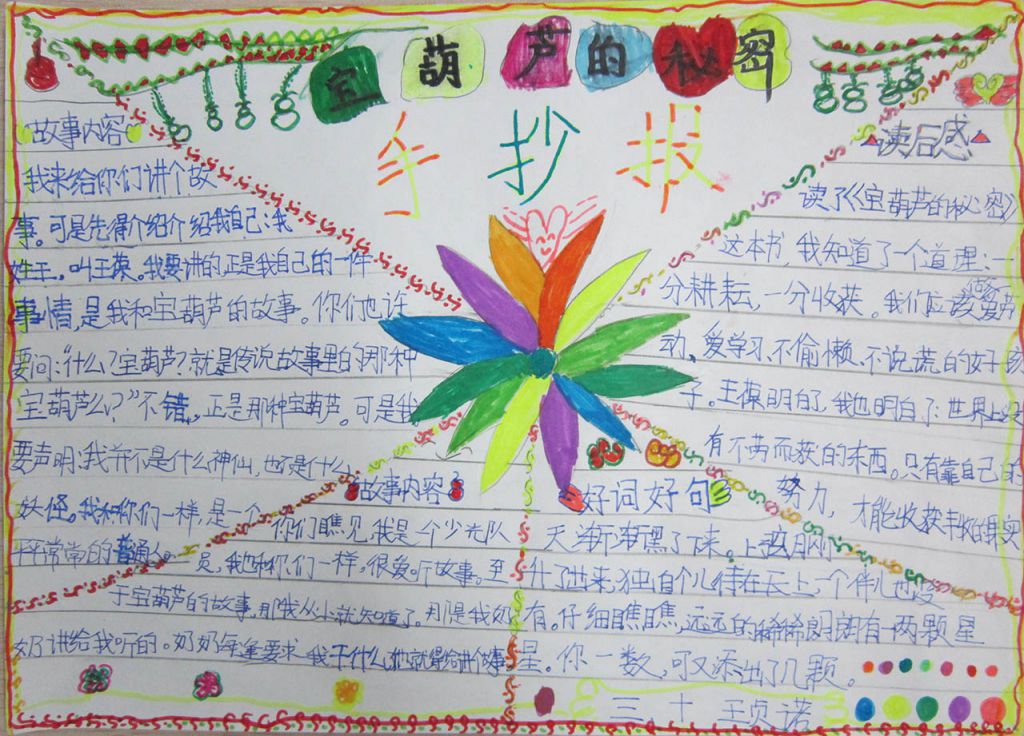 宝葫芦的秘密
手抄报
故事内容
我来给你们讲个故
事。可是先得介绍介绍我自己：我
姓王。叫王葆。我要讲的，正是我自己的一件
事情，是我和宝葫芦的故事。你们也许
要问：“什么？宝葫芦？就是传说故事里的那种
宝葫芦么？”不错，正是那种宝葫芦。可是我
要声明，我并不是什么神仙，也不是什么
妖怪。我和你们一样，是一个
平平常常的普通人。
故事内容
你们瞧见，我是一个少先队
员，我也和你们一样，很爱听故事。至
于宝葫芦的故事，那我从小就知道了。那是我奶
奶讲给我听的。奶奶每逢要求我干什么，他就得给讲个故事
好词好句
天渐渐黑了下来。上弦月刚
升了出来，独自个儿待在天上，一个伴儿也没
有。仔细瞧瞧，远远的稀稀朗朗有一两颗星
星。你一数，可又添出了几颗。
读后感
读了《宝葫芦的秘密》
这本书，我知道了一个道理：一
分耕耘，一分收获。我们应该爱劳
动、爱学习、不偷懒、不说谎的好孩
子。王葆明白了，我也明白了：世界上没
有不劳而获的东西。只有靠自己的
努力，才能收获丰收的果实
三 十 王贞诺